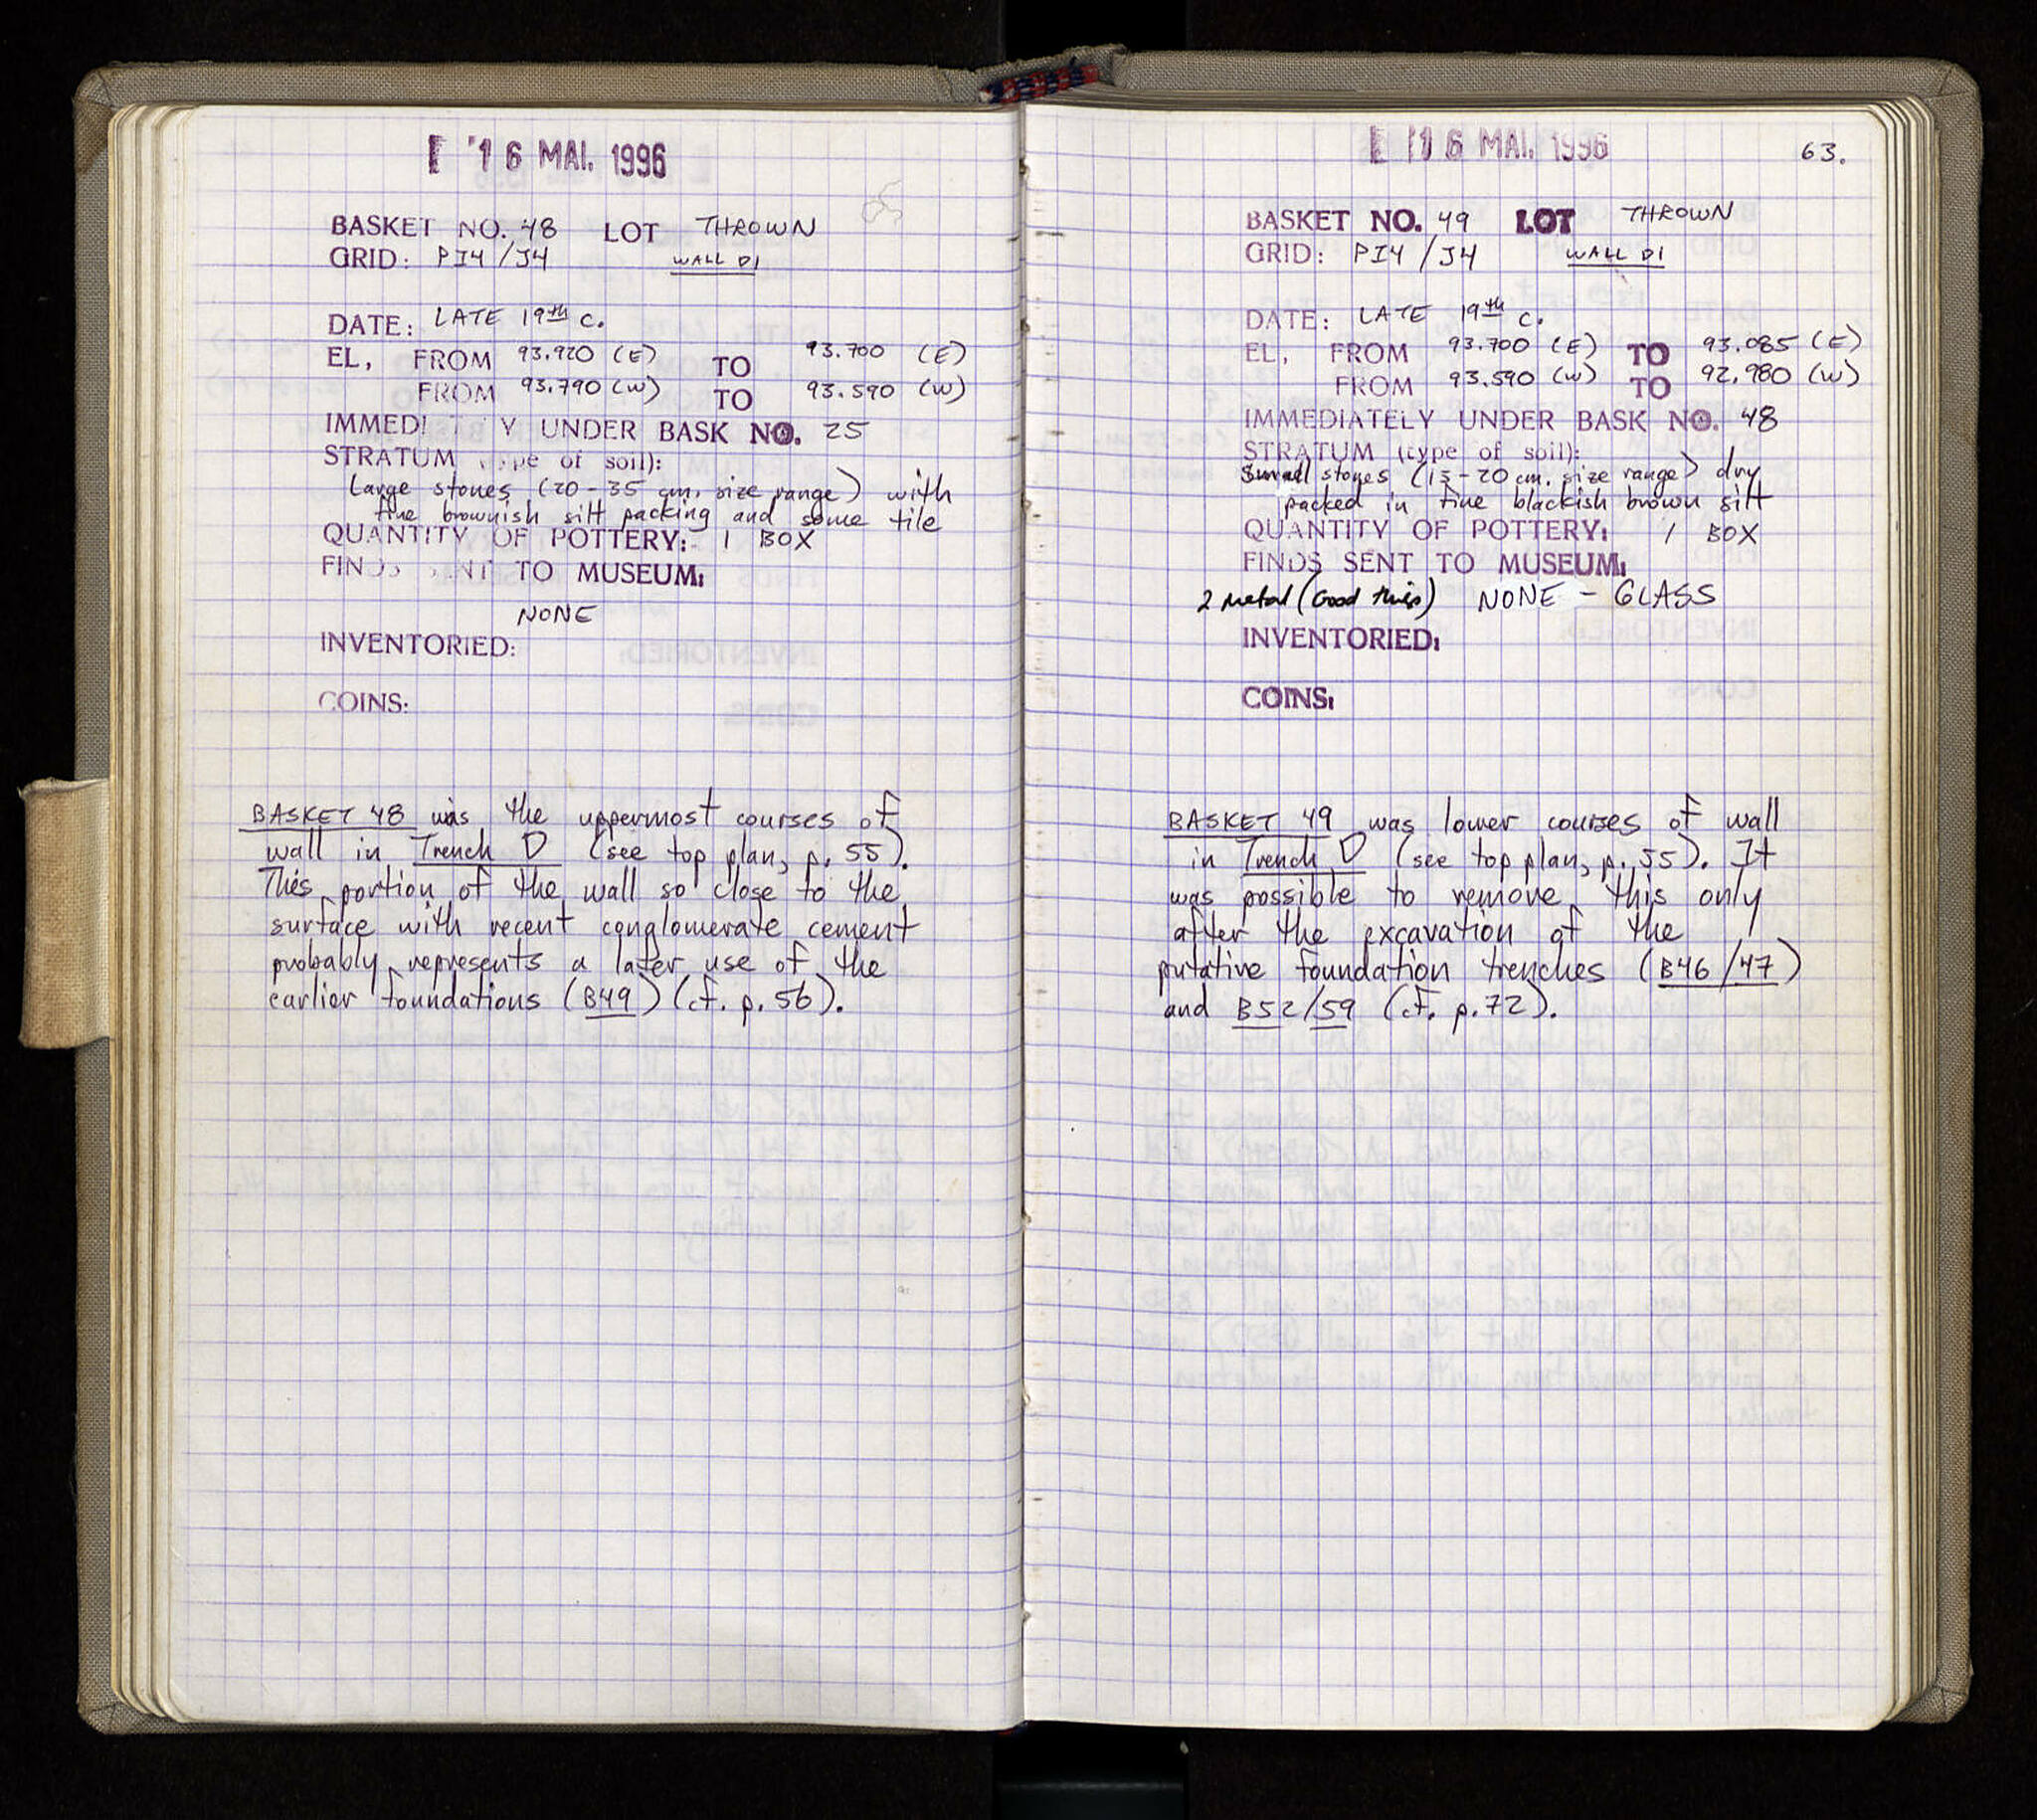 16 MAI. 1996
BASKET NO. 48 LOT THROWN
GRID: PI4/J4 WALL D1
DATE: LATE 19th c.
EL, FROM 93.920 (E) TO 93.700 (E)
FROM 93.790 (W) TO 93.590 (W)
IMMEDI Y UNDER BASK NO. 25
STRATUM type of soil):
Large stones (20-35 cm. size range) with
fine brownish silt packing and some tile
QUANTITY OF POTTERY: 1 BOX
FINDS SENT TO MUSEUM:
NONE
INVENTORIED:
COINS:
BASKET 48 was the uppermost courses of
wall in Trench D (see top plan, p. 55).
This portion of the wall so close to the
surface with recent conglomerate cement
probably represents a later use of the
earlier foundations (B49) (cf. p. 56).
16 MAI. 1996
63.
BASKET NO. 49 LOT THROWN
GRID: PI4/J4 WALL D1
DATE: LATE 19th c.
EL, FROM 93.700 (E) TO 93.085 (E)
FROM 93.590 (W) TO 92.980 (W)
IMMEDIATELY UNDER BASK NO. 48
STRATUM (type of soil):
Small stones (15-20 cm. size range) dry
packed in fine blackish brown silt
QUANTITY OF POTTERY: 1 BOX
FINDS SENT TO MUSEUM:
2 metal (Good this) NONE - GLASS
INVENTORIED:
COINS:
BASKET 49 was lower courses of wall
in Trench D (see top plan, p. 55). It
was possible to remove this only
after the excavation of the
putative foundation trenches (B46/47)
and B52/59 (cf. p.72).